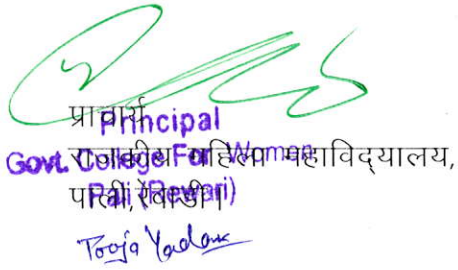 प्राचार्य
Principal
राजकीय महिला महाविद्यालय,
Govt. College For Women
पाली, रेवाडी।
Pali (Rewari)
Pooja Yadav